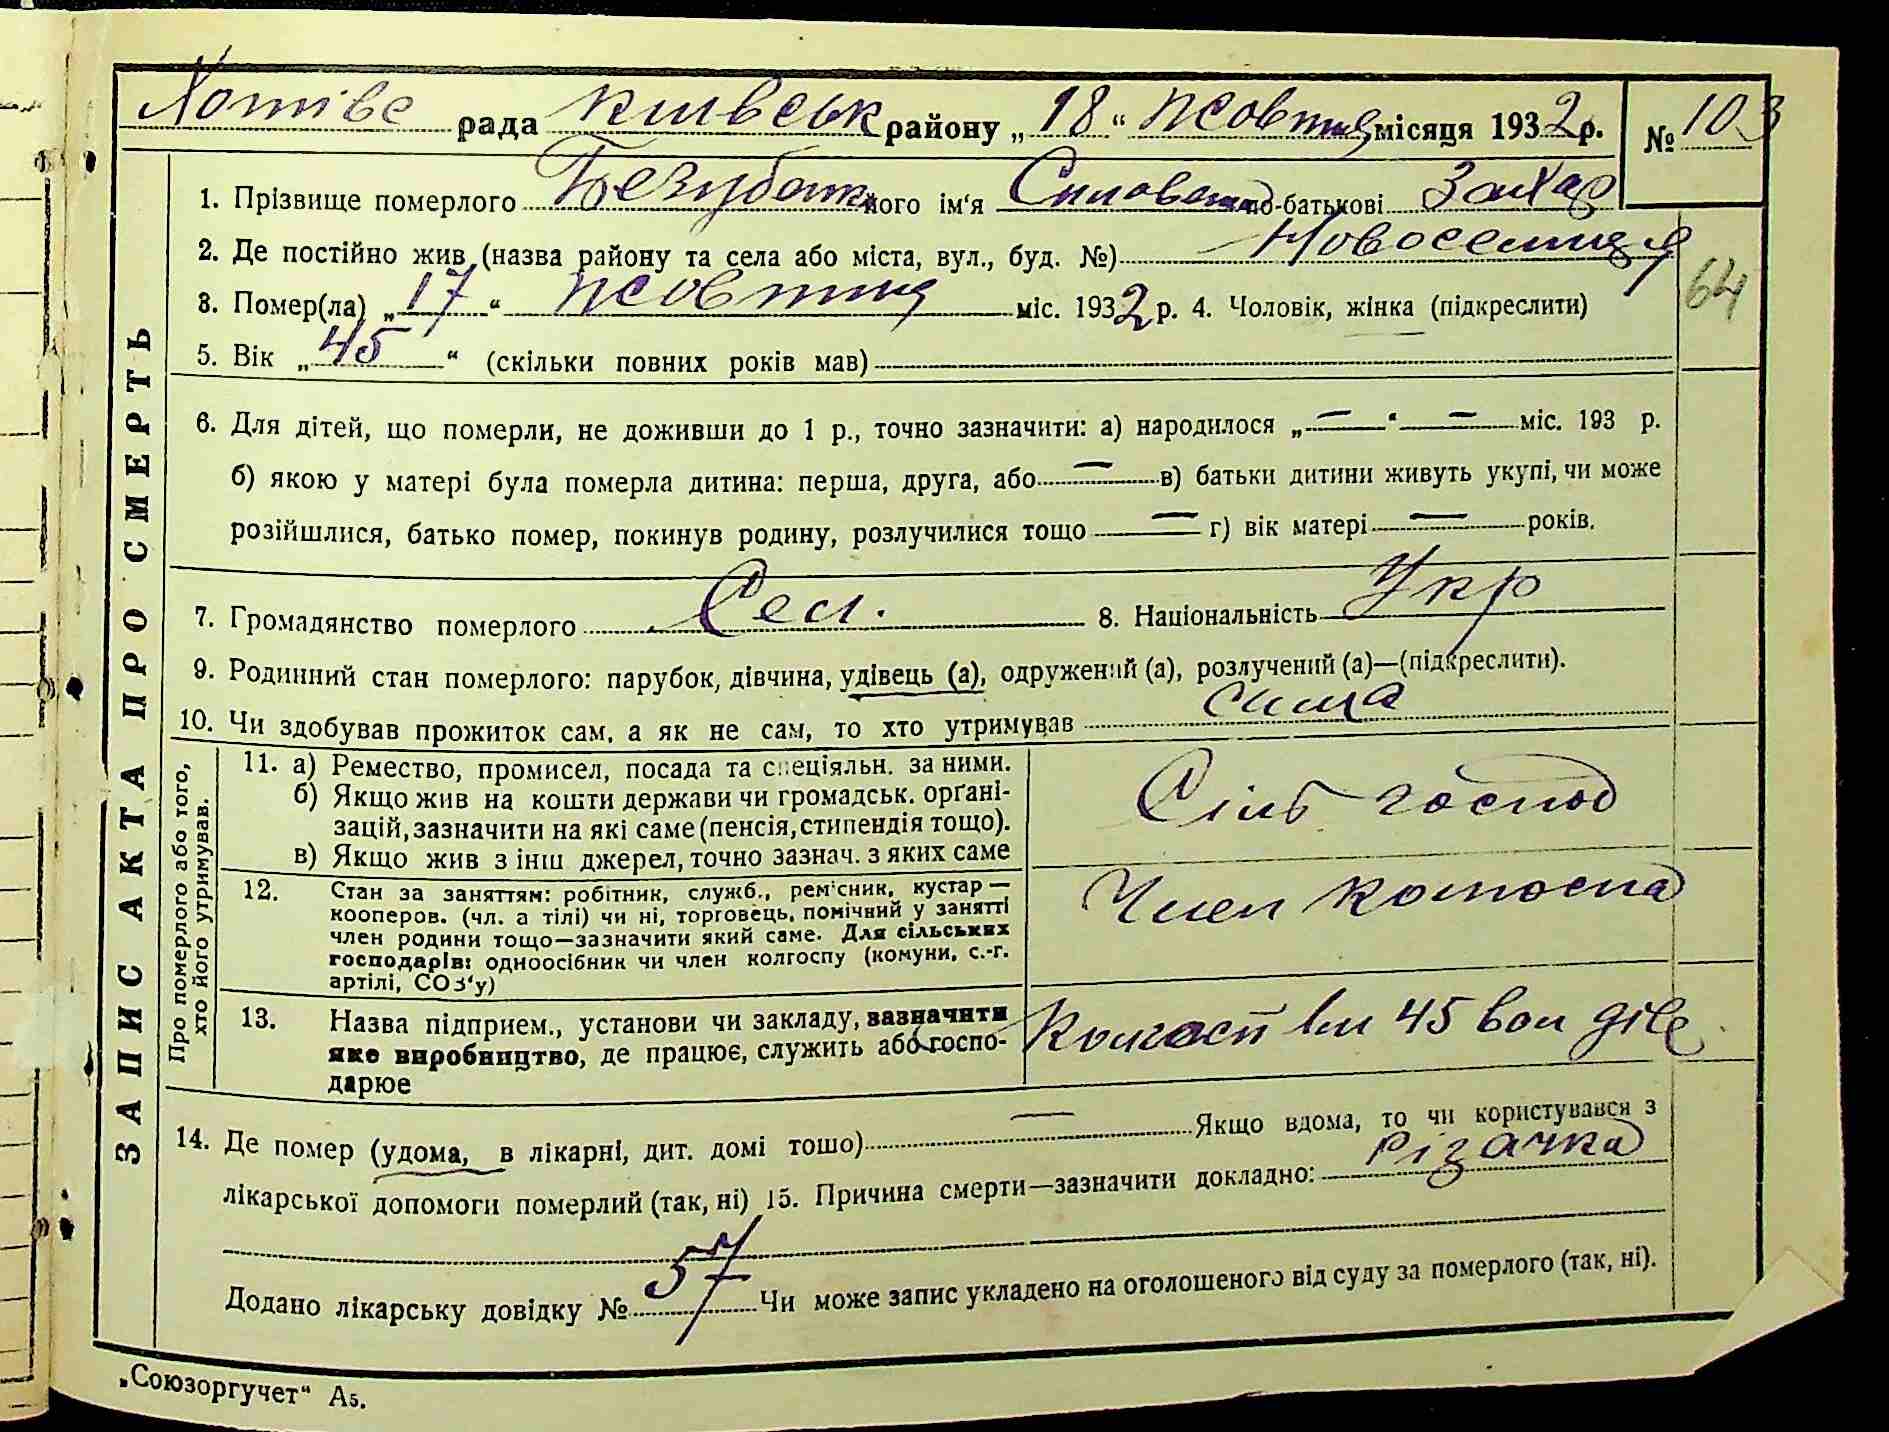 Хотівс рада Київськ району „18“ Жовтня місяця 1932 р. № 103
1. Прізвище померлого його ім'я по-батькові Захар
2. Де постійно жив (назва району та села або міста, вул., буд. №) Новоселиця
3. Помер(ла) „17“ Жовтня міс. 1932 р. 4. Чоловік, жінка (підкреслити)
64
5. Вік „45“ (скільки повних років мав)
6. Для дітей, що померли, не доживши до 1 р., точно зазначити: а) народилося „—“ — міс. 193 р.
б) якою у матері була померла дитина: перша, друга, або — в) батьки дитини живуть укупі, чи може
розійшлися, батько помер, покинув родину, розлучилися тощо — г) вік матері — років.
7. Громадянство померлого 8. Національність Укр
9. Родинний стан померлого: парубок, дівчина, удівець (а), одружений (а), розлучений (а)—(підкреслити).
10. Чи здобував прожиток сам, а як не сам, то хто утримував сама
ЗАПИС АКТА ПРО СМЕРТЬ
Про померлого або того,
хто його утримував.
11. а) Ремество, промисел, посада та спеціяльн. за ними.
б) Якщо жив на кошти держави чи громадськ. орґані-
зацій, зазначити на які саме (пенсія, стипендія тощо).
в) Якщо жив з інш джерел, точно зазнач. з яких саме
Сільс господ
12. Стан за заняттям: робітник, служб., рем'сник, кустар —
кооперов. (чл. а тілі) чи ні, торговець, помічний у занятті
член родини тощо—зазначити який саме. Для сільських
господарів: одноосібник чи член колгоспу (комуни, с.-г.
артілі, СОЗ'у)
Член колгоспа
13. Назва підприєм., установи чи закладу, зазначити
яке виробництво, де працює, служить або госпо-
дарює
Колгосп 45
14. Де помер (удома, в лікарні, дит. домі тощо) — Якщо вдома, то чи користувався з
лікарської допомоги померлий (так, ні) 15. Причина смерти—зазначити докладно: різачка
Додано лікарську довідку № 57 Чи може запис укладено на оголошеного від суду за померлого (так, ні).
„Союзоргучет“ А5.